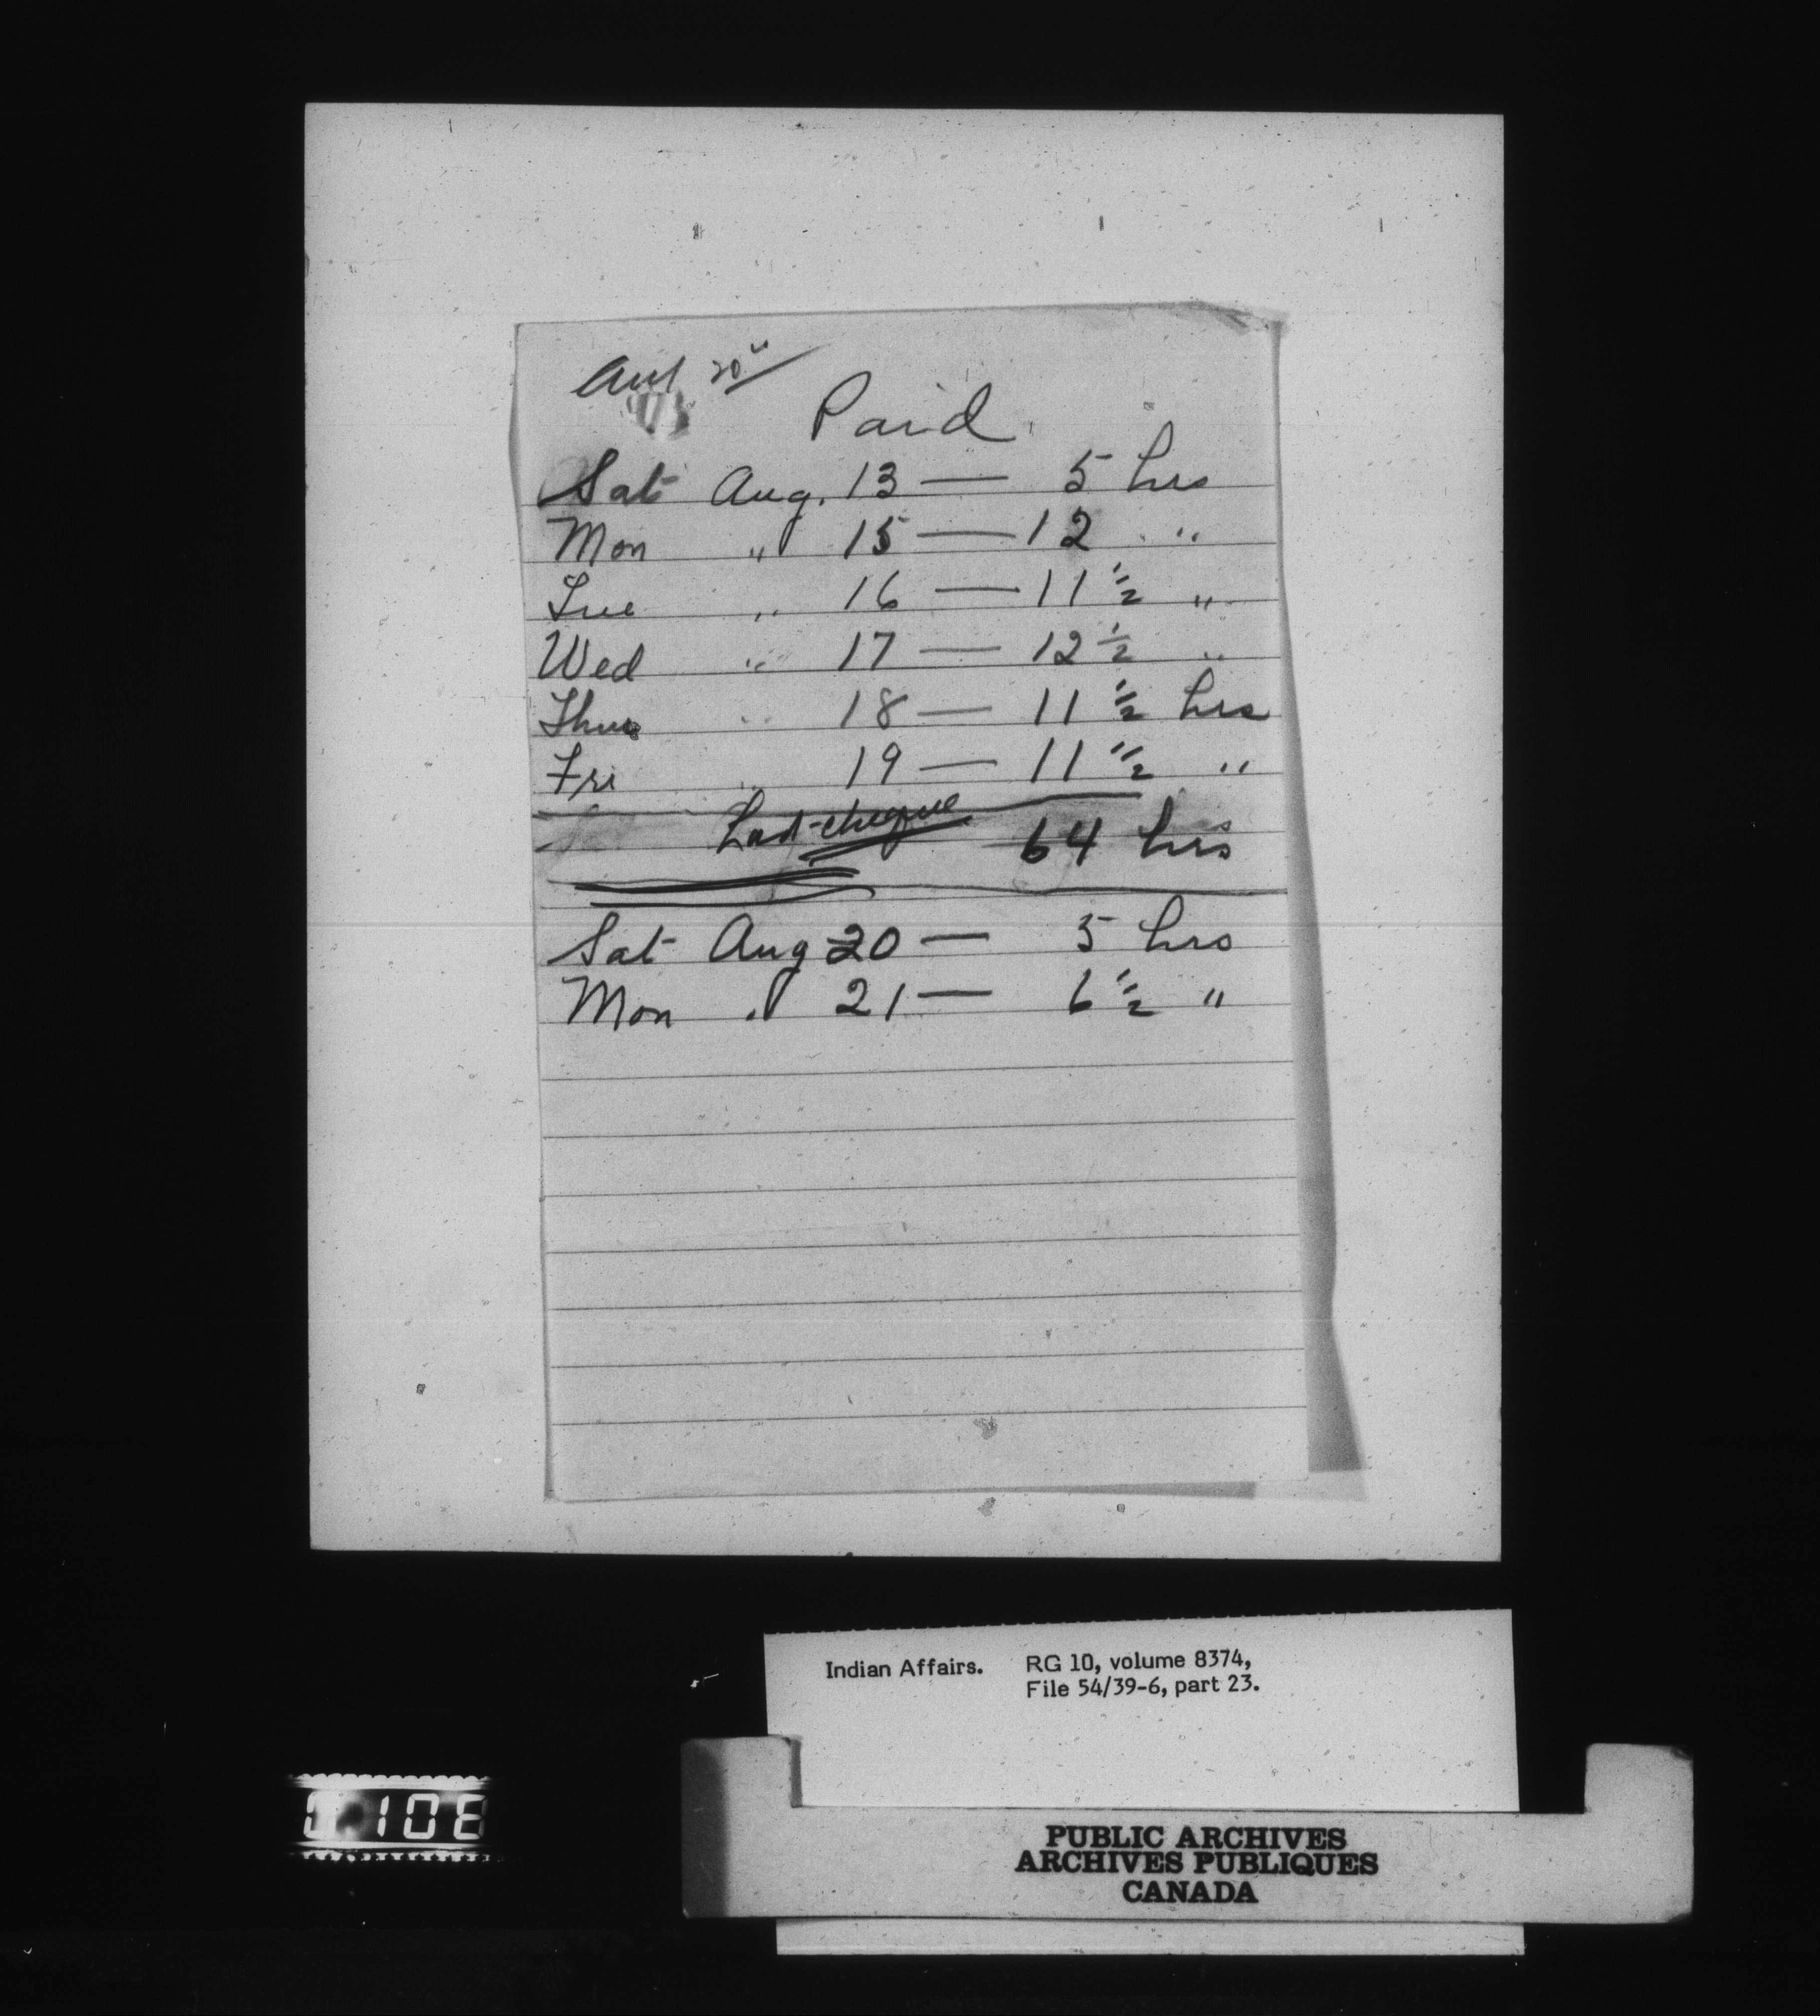 Aug 20"
Paid
Sat Aug. 13 — 5 hrs
Mon " 15 — 12 "
Tue " 16 — 11 1/2 "
Wed " 17 — 12 1/2 "
Thur " 18 — 11 1/2 hrs
Fri " 19 — 11 1/2 "
Last cheque 64 hrs
Sat Aug 20 — 5 hrs
Mon " 21 — 6 1/2 "
Indian Affairs. RG 10, volume 8374,
File 54/39-6, part 23.
PUBLIC ARCHIVES
ARCHIVES PUBLIQUES
CANADA